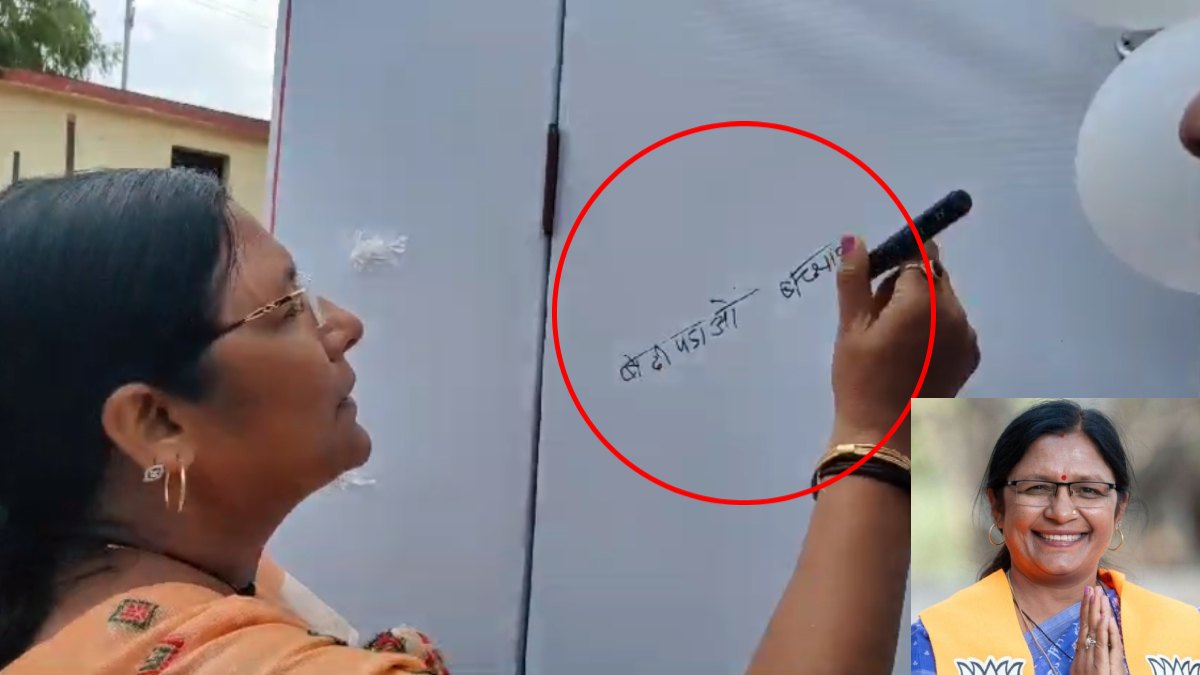 बेढी पडाओ बच्चाव